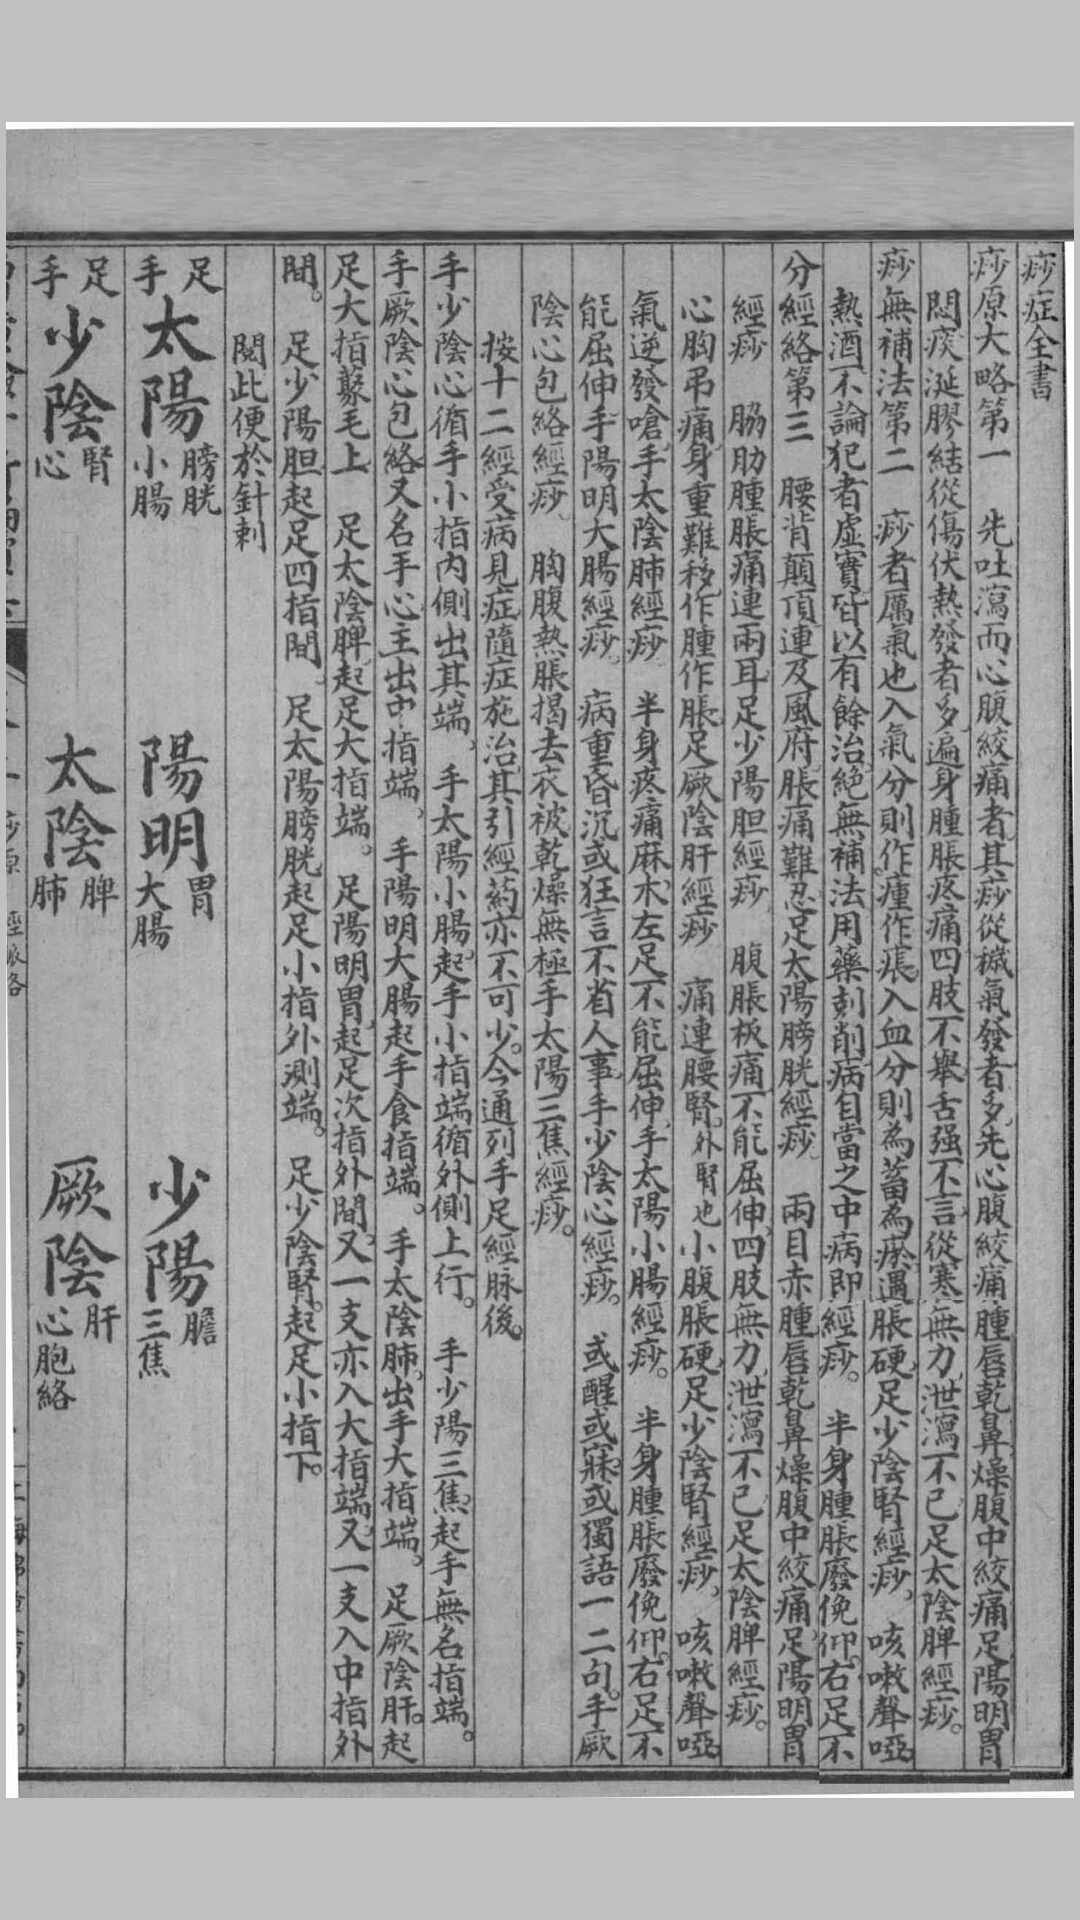 痧症全書
痧原大略第一　先吐瀉而心腹絞痛者其痧從穢氣發者多先心腹絞痛腫唇乾鼻燥腹中絞痛足陽明胃
悶痰涎膠結從傷伏熱發者多遍身腫脹疼痛四肢不舉舌强不言從寒無力泄瀉不已足太陰脾經痧。
痧無補法第二　痧者厲氣也入氣分則作瘇作痕入血分則為蓄為瘀遇脹硬足少陰腎經痧　咳嗽聲啞
熱酒不論犯者虛實皆以有餘治絕無補法用藥刻削病自當之中病即經痧。　半身腫脹廢俛仰右足不
分經絡第三　腰背顛頂連及風府脹痛難忍足太陽膀胱經痧　兩目赤腫唇乾鼻燥腹中絞痛足陽明胃
經痧　脇肋腫脹痛連兩耳足少陽胆經痧　腹脹板痛不能屈伸四肢無力泄瀉不已足太陰脾經痧。
心胸吊痛身重難移作腫作脹足厥陰肝經痧　痛連腰腎外腎也小腹脹硬足少陰腎經痧　咳嗽聲啞
氣逆發嗆手太陰肺經痧　半身疼痛麻木左足不能屈伸手太陽小腸經痧。　半身腫脹廢俛仰右足不
能屈伸手陽明大腸經痧。　病重昏沉或狂言不省人事手少陰心經痧。　或醒或寐或獨語一二句。手厥
陰心包絡經痧　胸腹熱脹揭去衣被乾燥無極手太陽三焦經痧。
按十二經受病見症隨症施治其引經葯亦不可少。今通列手足經脉後。
手少陰心循手小指內側出其端　手太陽小腸起手小指端循外側上行。　手少陽三焦起手無名指端。
手厥陰心包絡又名手心主出中指端。　手陽明大腸起手食指端。　手太陰肺出手大指端。　足厥陰肝起
足大指藂毛上　足太陰脾起足大指端。　足陽明胃起足次指外間又一支亦入大指端又一支入中指外
間。　足少陽胆起足四指間。　足太陽膀胱起足小指外測端。　足少陰腎起足小指下。
閱此便於針刺
足手太陽膀胱小腸　陽明胃大腸　少陽膽三焦
足手少陰腎心　太陰脾肺　厥陰肝心胞絡